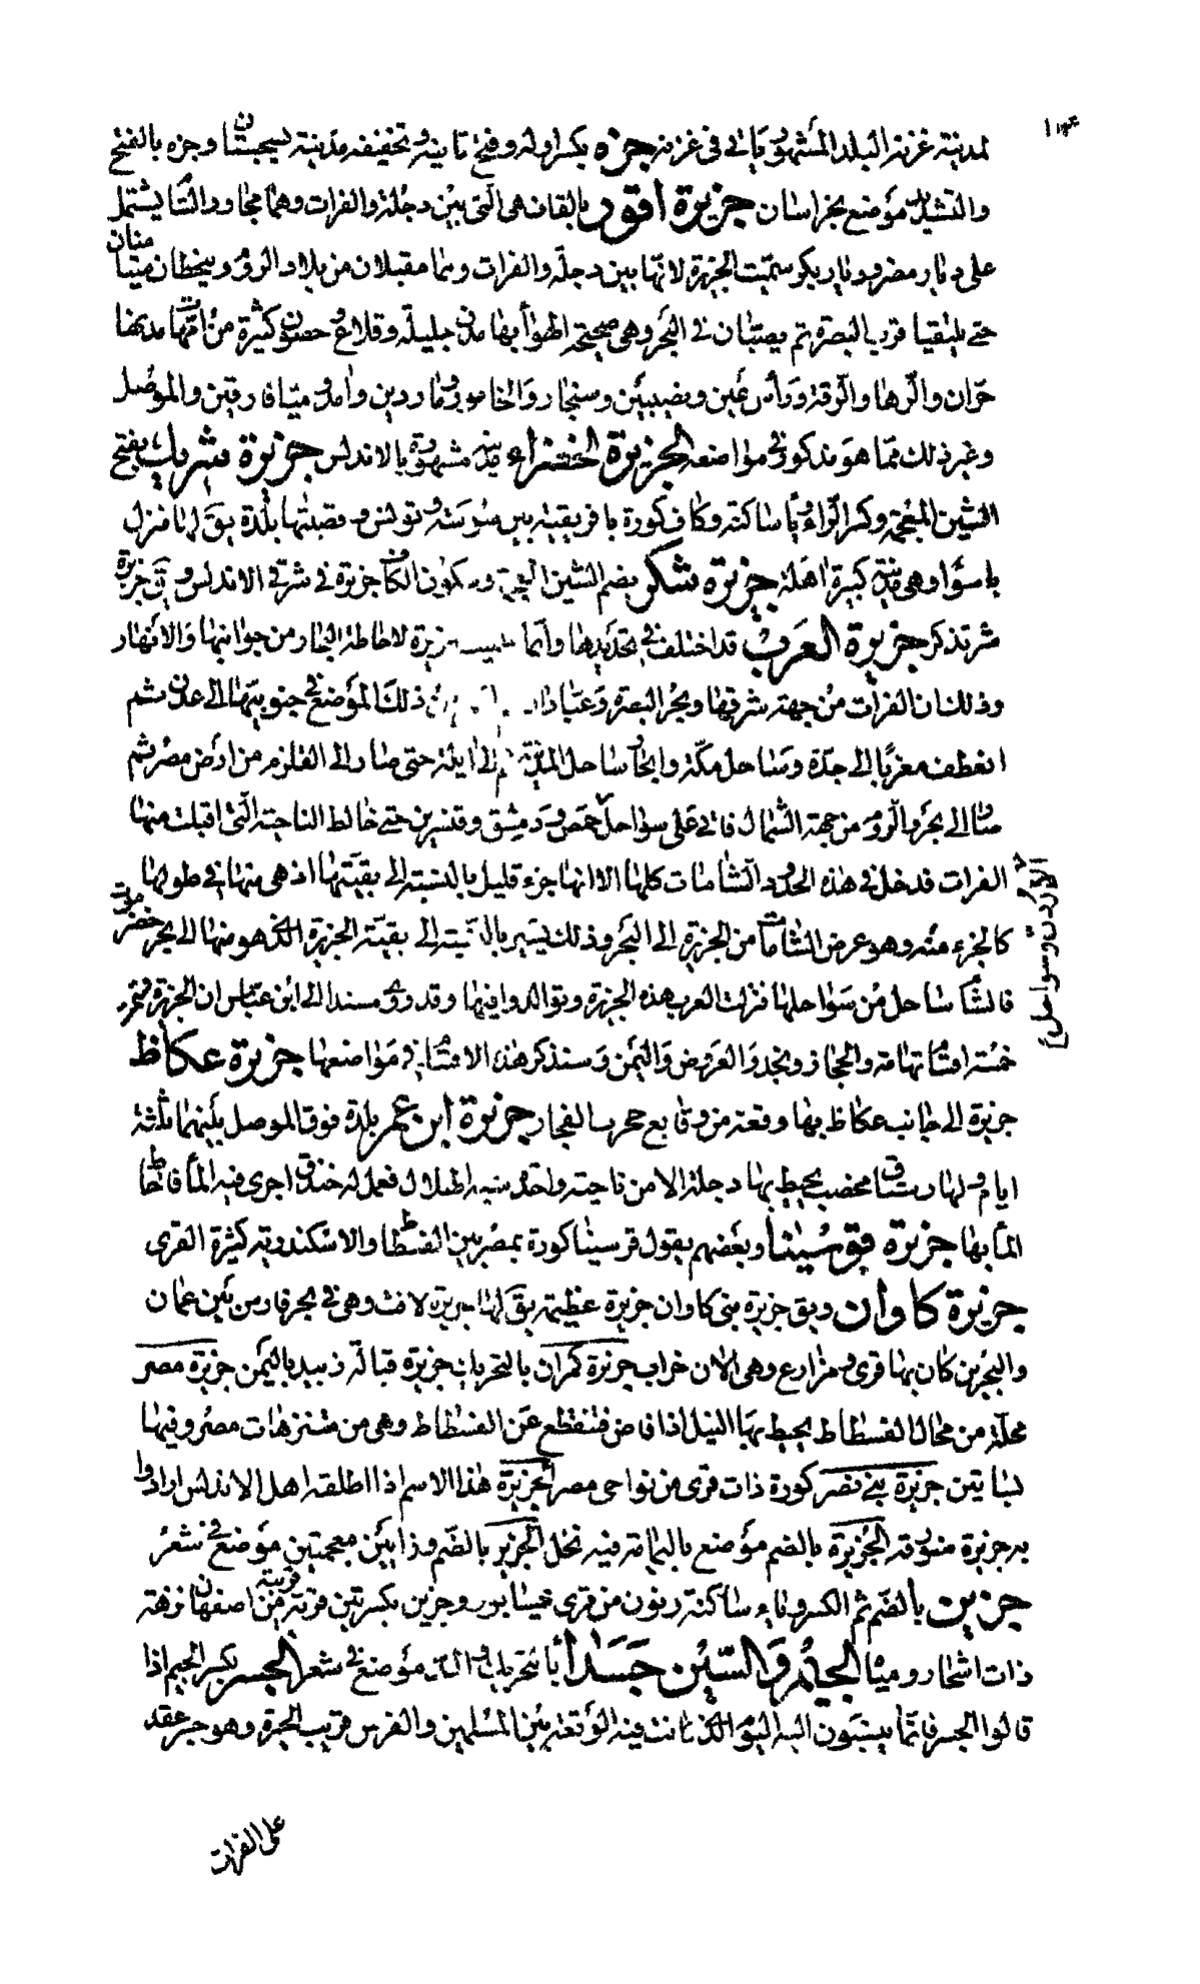 لمدينة غزنة البلد المشهور ياتى فى غزنة جزه بكسر اوله وفتح ثانيه وتخفيفه مدينة بسجستان وجزه بالفتح
والتشديد موضع بخراسان جزيرة اقور بالقاف هى التى بين دجلة والفرات وهما مجاور الشام يشتمل
على ديار مضر وديار بكر سميت الجزيرة لانها بين دجلة والفرات وهما مقبلان من بلاد الروم وينحطان متسامتان
حتى يلتقيا قرب البصرة ثم يصبان فى البحر وهى صحيحة الهوا بها مدن جليلة وقلاع وحصون كثيرة من امهات مدنها
حران والرها والرقة ورأس عين ونصيبين وسنجار والخابور وماردين وآمد وميافارقين والموصل
وغير ذلك مما هو مذكور فى مواضعه الجزيرة الخضراء مدينة مشهورة بالاندلس جزيرة شريك بفتح
الشين المعجمة وكسر الراء وياء ساكنة وكاف كورة بافريقية بين سوسة وتونس وقصبتها بلدة يقال لها منزل
باسو او هى مدينة كبيرة اهلة جزيرة شكر بضم الشين المعجمة وسكون الكاف جزيرة فى شرقى الاندلس ويقال جزيرة
شقر تذكر جزيرة العرب قد اختلف فى تحديدها وانما سميت جزيرة لاحاطة البحار من جوانبها والانهار
وذلك ان الفرات من جهة شرقها وبحر البصرة وعبادان ذلك الموضع فى جنوبيها الى عدن ثم
انعطف مغربا الى جدة وساحل مكة والجار ساحل المدينة ثم الى ايلة حتى صار الى القلزم من ارض مصر ثم
صار الى بحر الروم من جهة الشمال فاتى على سواحل حمص ودمشق وقنسرين حتى خالط الناحية التى اقبلت منها
الاردن وسواحل
الفرات فدخل فى هذه الحدود الشامات كلها الا انها جزء قليل بالنسبة الى بقيتها اذ هى منها فى طولها
كالجزء منه وهو عرض الشامات من الجزيرة الى البحر وذلك يسير بالنسبة الى بقية الجزيرة الذى هو منها الى بحر حضرموت
فالشام ساحل من سواحلها فنزلت العرب هذه الجزيرة وتوالدوا فيها وقد روى مسندا الى ابن عباس ان الجزيرة تحرز
خمسة اقسام تهامة والحجاز ونجد والعروض واليمن وسنذكر هذه الاقسام فى مواضعها جزيرة عكاظ
جزيرة الى جانب عكاظ بها وقعة من وقايع حرب الفجار جزيرة ابن عمر بلدة فوق الموصل بينهما ثلثة
ايام ولها رستاق مخصب يحيط بها دجلة الا من ناحية واحدة شبه الهلال فعمل له خندق اجرى فيه الما فاحاط
الما بها جزيرة قوسينا وبعضهم يقول قرسينا كورة بمصر بين الفسطاط والاسكندرية كثيرة القرى
جزيرة كاوان ويق جزيرة بنى كاوان جزيرة عظيمة يق لها جزيرة لافت وهى فى بحر فارس بين عمان
والبحرين كان بها قرى ومزارع وهى الان خراب جزيرة كمران بالتحريك جزيرة قبالة زبيد باليمن جزيرة مصر
محلة من محال الفسطاط يحيط بها النيل اذا فاض فتنقطع عن الفسطاط وهى من متنزهات مصر وفيها
بساتين جزيرة بنى نصر كورة ذات قرى من نواحى مصر الجزيرة هذا الاسم اذا اطلقه اهل الاندلس ارادوا
به جزيرة ميورقة الجزيرة بالضم موضع باليمامة فيه نخل الجزيز بالضم وزايين معجمتين موضع فى شعر
جزين بالضم ثم الكسر وياء ساكنة ونون من قرى نيسابور وجزين بكسرتين قرية قريبة من اصفهان نزهة
ذات اشجار ومياه الجيم والسين جسدا بالتحريك والمد موضع فى شعر الجسر بكسر الجيم اذا
قالوا الجسر فانما ينسبون اليه اليوم الذى كانت فيه الوقعة بين المسلمين والفرس قريب الحيرة وهو جسر عقد
على الفرات